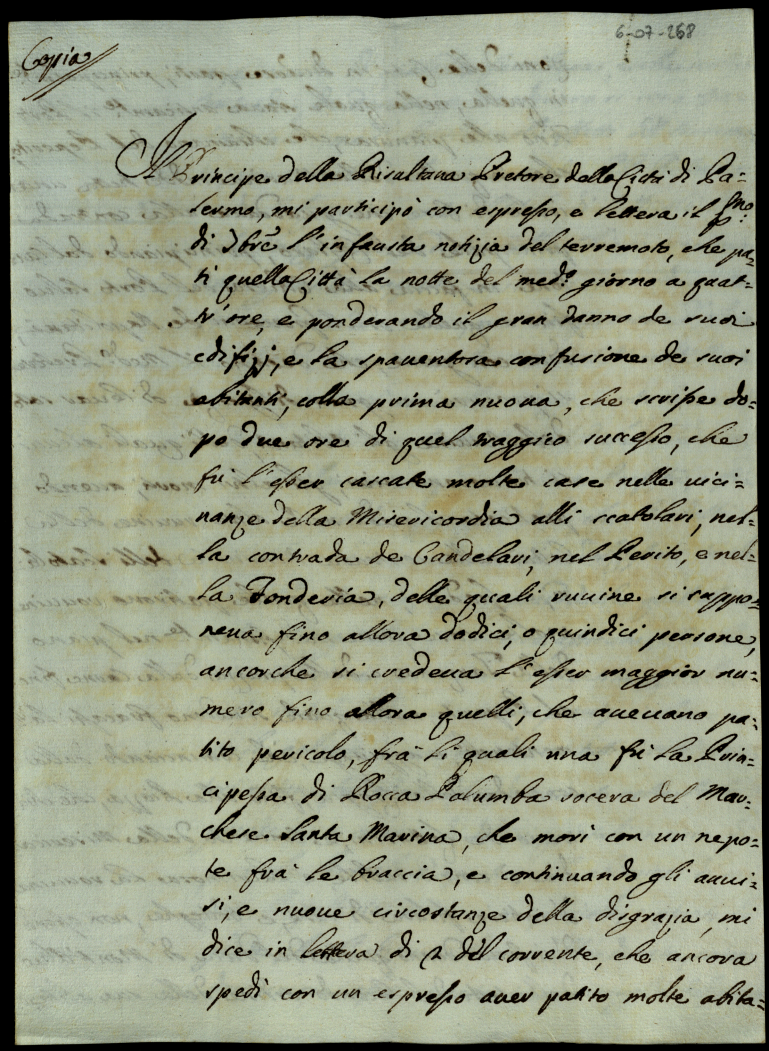 6-07-268
Copia
Il Principe della Risaltana Pretore della Città di Pa=
lermo, mi participò con espresso, e lettera il pmo:
di 7bre l'infausta notizia del terremoto, che pa=
tì quella Città la notte del med.o giorno a quat=
tr'ore, e ponderando il gran danno de suoi
edifizj, e la spauentosa confusione de suoi
abitanti, colla prima nuoua, che scrisse do=
po due ore di quel traggico successo, che
fù l'esser cascate molte case nelle uici=
nanze della Misericordia alli scatolari, nel=
la contrada de Candelari, nel Perito, e nel=
la Fonderia, delle quali ruuine si suppo=
neua fino allora dodici, o quindici persone,
ancorche si credeua l'esser maggior nu=
mero fino allora quelli, che aueuano pa=
tito pericolo, frà li quali una fù la Prin=
cipessa di Rocca Palumba socera del Mar=
chese Santa Marina, che morì con un nepo=
te frà le braccia, e continuando gli auui=
si, e nuoue circostanze della disgrazia, mi
dice in lettera di 2 del corrente, che ancora
spedì con un espresso auer patito molte abita=